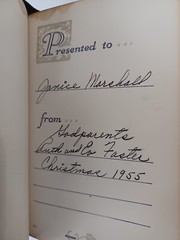 Presented to...
Janice Marshall
from...
Godparents
Ruth and Ed Foster
Christmas 1955